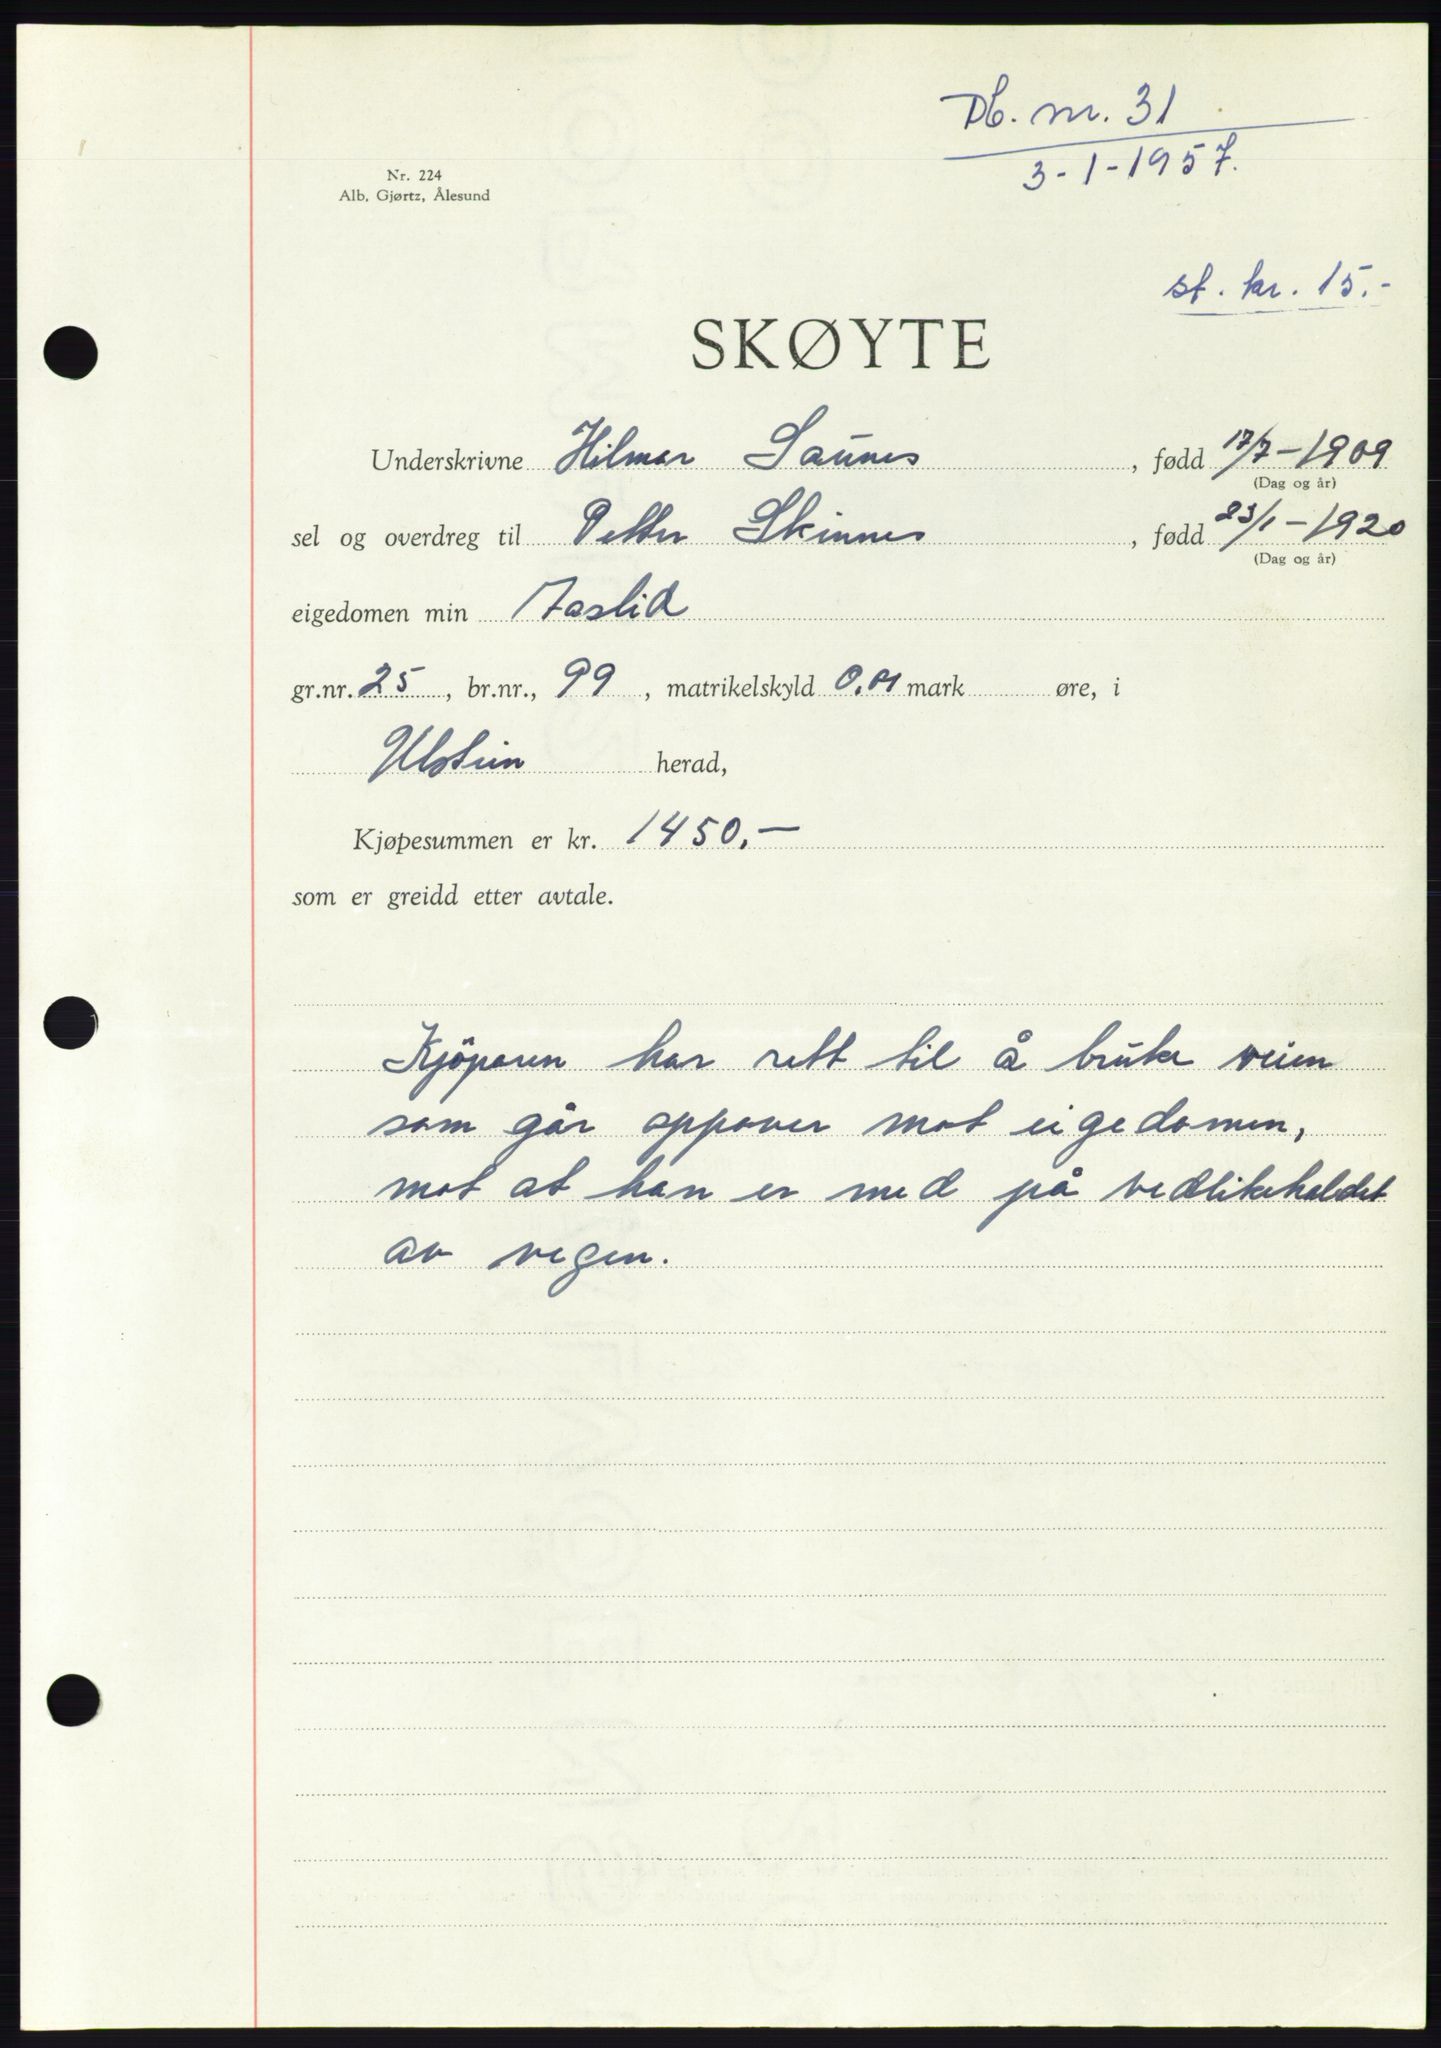 Db. nr. 31
3-1-1957.
Nr. 224
Alb. Gjørtz, Ålesund
st. kr. 15.-
SKØYTE
Underskrivne Hilmar Saunes, fødd 17/7-1909
(Dag og år)
sel og overdreg til Petter Skinnes, fødd 23/1-1920
(Dag og år)
eigedomen min
gr.nr. 25, br.nr., 99, matrikelskyld 0,01 mark øre, i
Ulstein herad,
Kjøpesummen er kr. 1450,-
som er greidd etter avtale.
Kjöparen har rett til å bruke veien
som går oppover mot eigedomen,
mot at han er med på vedlikehaldet
av vegen.